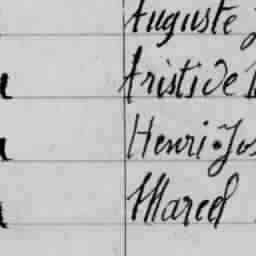 Auguste
Aristide
Henri•Jos
Marcel